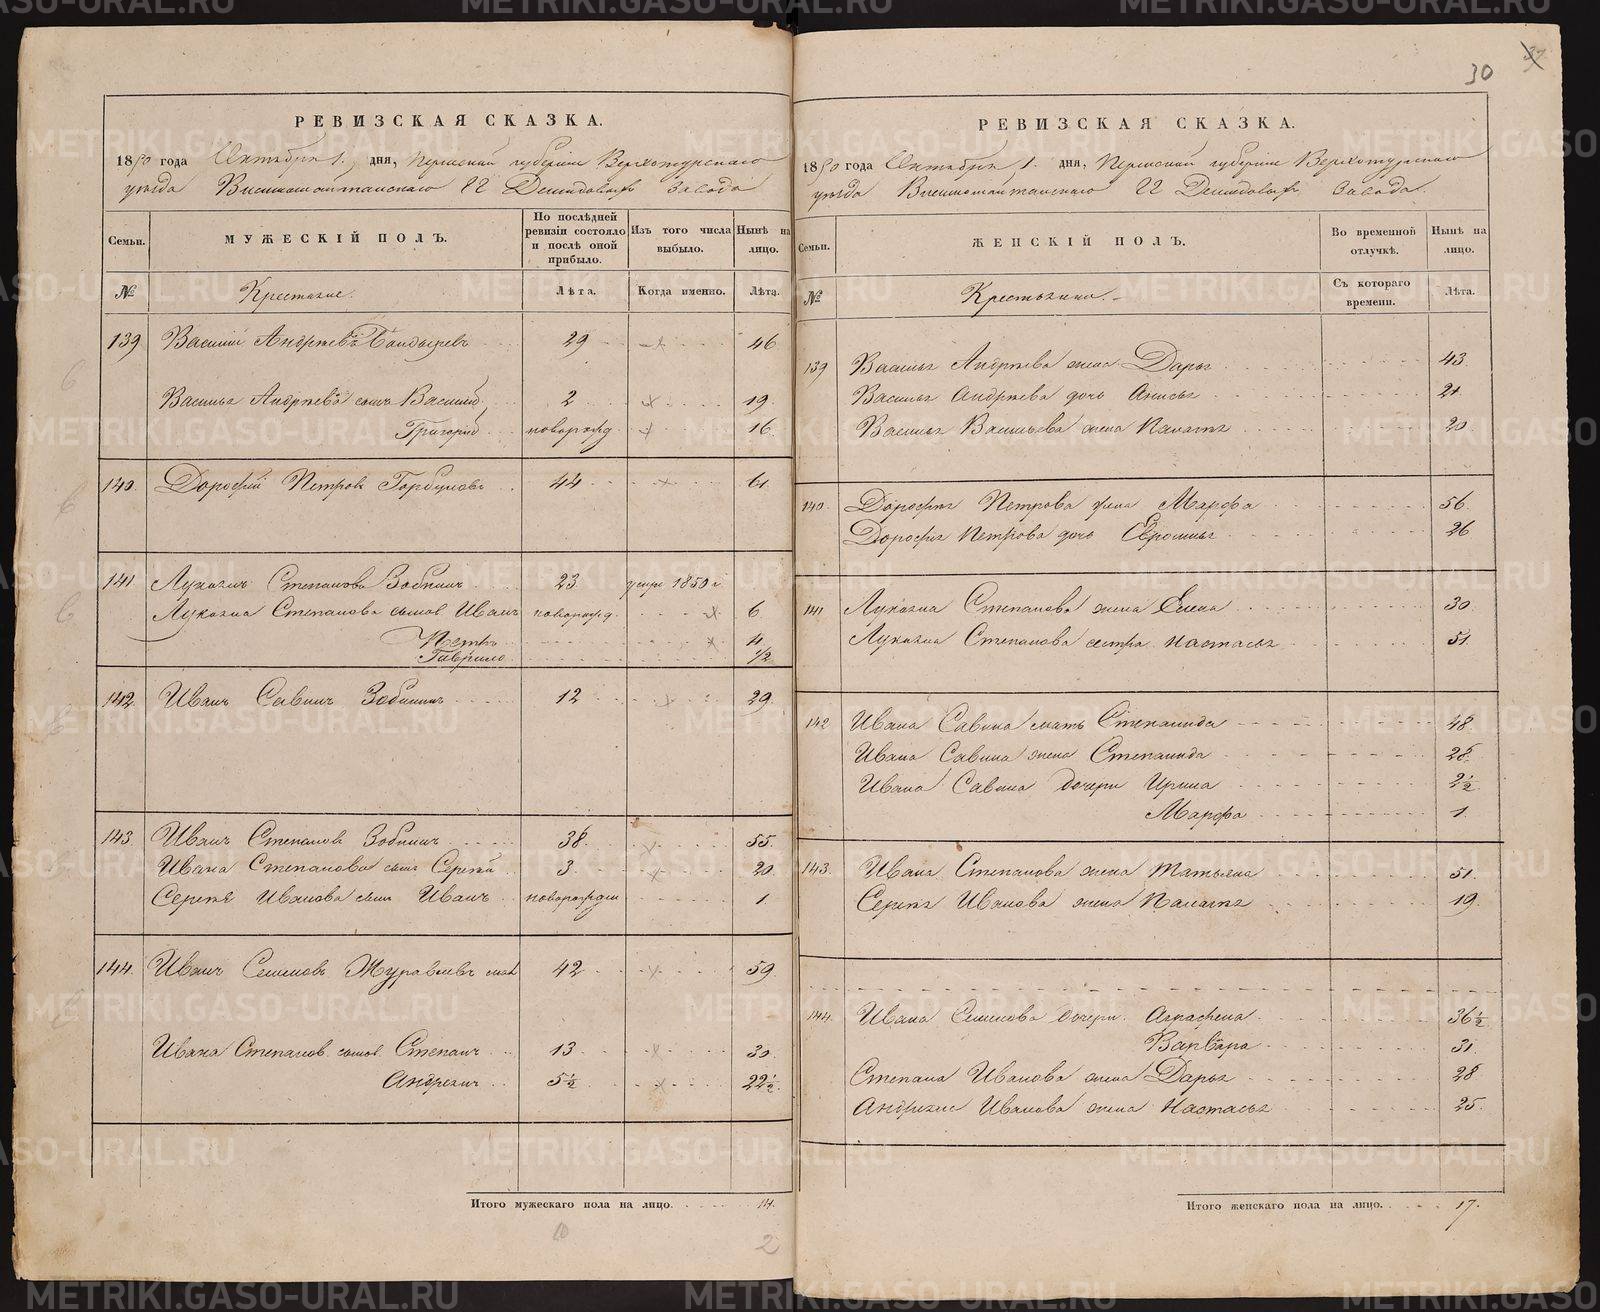 30
РЕВИЗСКАЯ СКАЗКА.
1850 года Октября 1. дня, Пермской губерніи Верхотурскаго
уезда Висимошайтанскаго ГГ Демидовыхъ завода
Семьи. МУЖЕСКІЙ ПОЛЪ. По послѣдней ревизіи состояло и послѣ оной прибыло. Изъ того числа выбыло. Нынѣ на лицо.
№ Крестьяне. Лѣта. Когда именно. Лѣта.
139 Василій Андреевъ 29 46
Василья Андреева сынъ Василій 2 19
Григорій новорожд 16
140. Дорофей Петровъ Горбуновъ 44 61
141 Лукоянъ Степановъ Зобнинъ 23 умре 1850 г
Лукояна Степанова сынов Иванъ новорожд 6
Петръ 4
Гаврило 1/2
142. Иванъ Савинъ Зобнинъ 12 29
143. Иванъ Степановъ Зобнинъ 38 55.
Ивана Степанова сынъ Сергей 3 20
Сергея Иванова сынъ Иванъ новорожден 1
144. Иванъ Семеновъ Журавлевъ 42 59
Ивана Степанов. сынов. Степанъ 13 30
Андреянъ 5½ 22½
Итого мужескаго пола на лицо. 14.
2
РЕВИЗСКАЯ СКАЗКА.
1850 года Октября 1. дня, Пермской губерніи Верхотурскаго
уезда Висимошайтанскаго ГГ Демидовыхъ завода.
Семьи. ЖЕНСКІЙ ПОЛЪ. Во временной отлучкѣ. Нынѣ на лицо.
№ Крестьянки. Съ котораго времени. Лѣта.
139 Василья Андреева жена Дарья 43
Василья Андреева дочь Анисья 21
Василья Васильева жена Палагея 20
140. Дорофея Петрова жена Марфа 56
Дорофея Петрова дочь Евросинья 26
141 Лукояна Степанова жена Елена 30
Лукояна Степанова сестра Настасья 51
142 Ивана Савина мать Степанида 48
Ивана Савина жена Степанида 28
Ивана Савина дочери Ирина 2½
Марфа 1
143. Ивана Степанова жена Татьяна 51.
Сергея Иванова жена Палагея 19
144. Ивана Семенова дочери. Аграфена 36½
Варвара 31
Степана Иванова жена Дарья 28
Андреяна Иванова жена Настасья 25.
Итого женскаго пола на лицо. 17.
METRIKI.GASO-URAL.RU